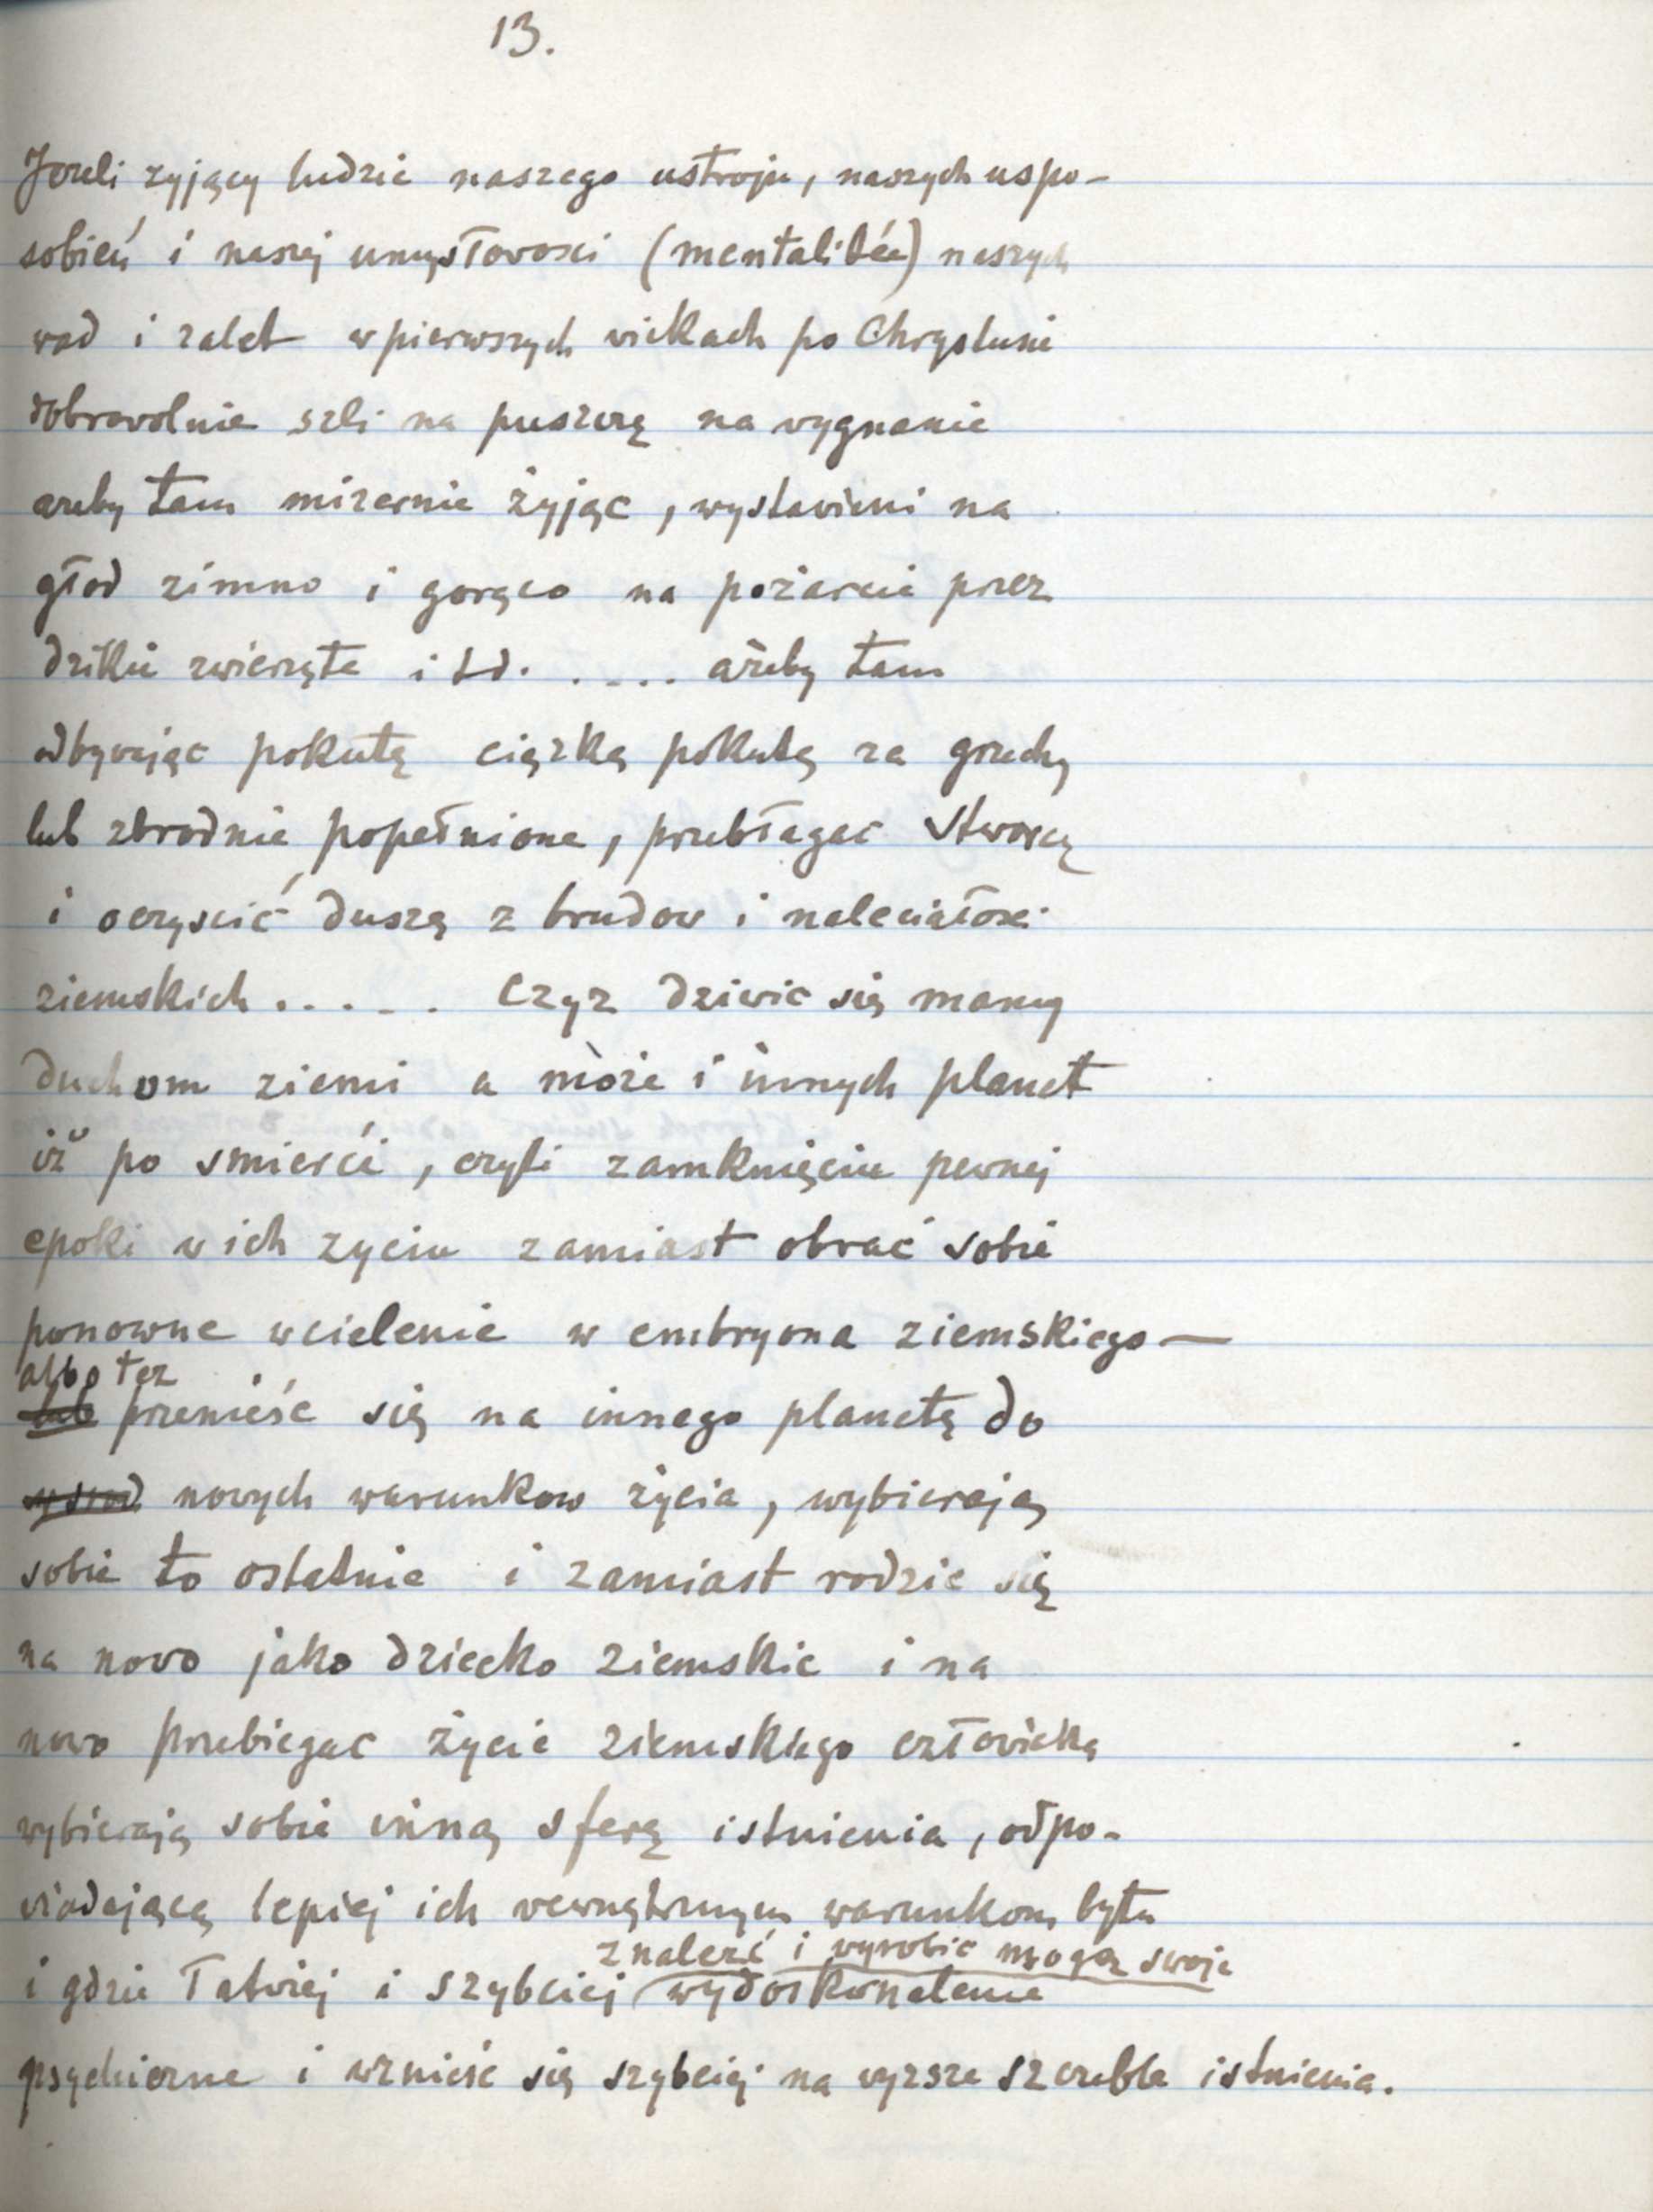 13.
Jezeli zyjący ludzie naszego ustroju, naszych uspo-
sobień i naszej umysłowosci (mentalitée) naszych
wad i zalet w pierwszych wiekach po Chrystusie
dobrowolnie szli na puszczę na wygnanie
azeby tam mizernie żyjąc, wystawieni na
głod zimno i gorąco na pożarcie przez
dzikie zwierzęta i t.d. . . . . ażeby tam
odbywając pokutę cięzką pokutę za grzechy
lub zbrodnie popełnione, przebłagac Stworcę
i oczyscić duszę z brudow i naleciałosci
ziemskich . . . . . Czyz dziwic się mamy
duchom ziemi a może i innych planet
iż po smierći, czyli zamknięciu pewnej
epoki w ich zyciu zamiast obrać sobie
ponowne wcielenie w embryona ziemskiego —
albo tez
lub przenieśc się na innego planetę do
nowych warunkow życia, wybierają
sobie to ostatnie i zamiast rodzic się
na nowo jako dziecko ziemskie i na
nowo przebiegac życie ziemskiego człowieka
wybierają sobie inną sferę istnienia, odpo-
wiadającą lepiej ich wewnętrznym warunkom bytu
znalezć i wyrobic mogą swoje
i gdzie łatwiej i szybciej wydoskonalenie
psychiczne i wznieśc się szybciej na wyzsze szczeble istnienia.